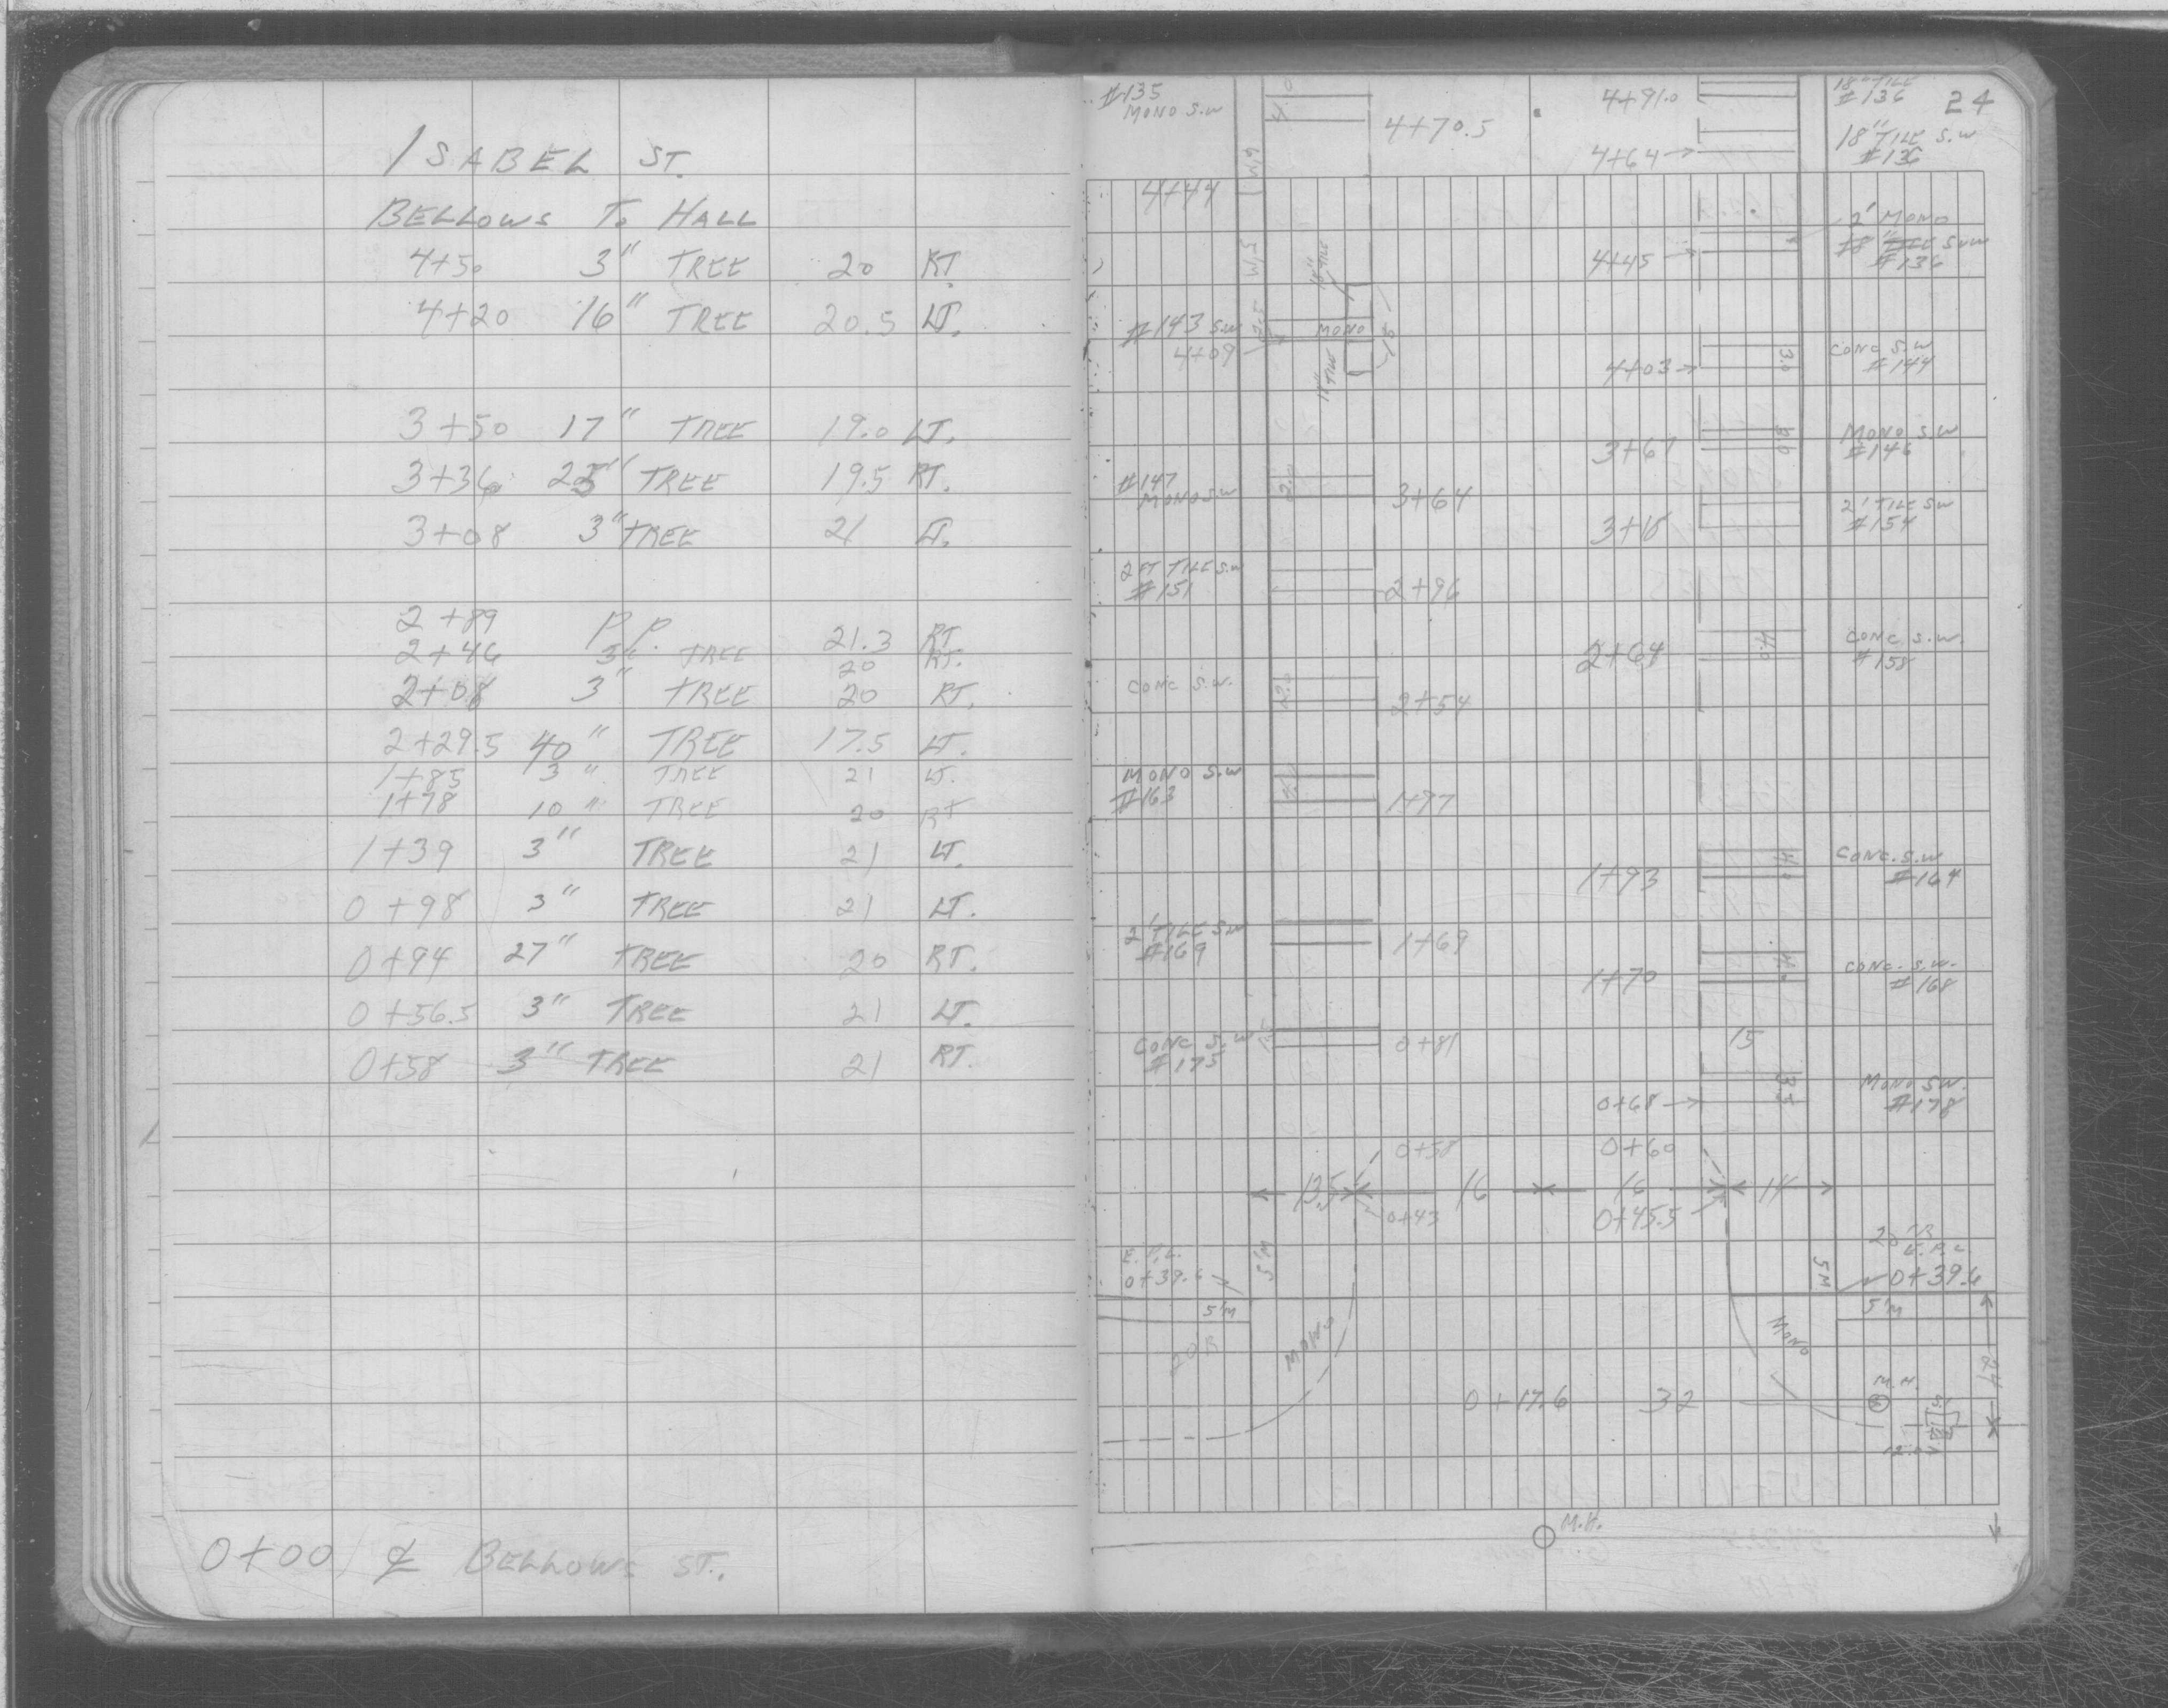 ISABEL ST.
BELLOWS TO HALL
4+50 3" TREE 20 RT.
4+20 16" TREE 20.5 LT.
3+50 17" TREE 19.0 LT.
3+36 TREE 19.5 RT.
3+08 3" TREE 21 LT.
2+89 P.P. 21.3 RT.
2+46 3" TREE 20 RT.
2+08 3" TREE 20 RT.
2+29.5 40" TREE 17.5 LT.
1+85 3" TREE 21 LT.
1+78 10" TREE 20 RT
1+39 3" TREE 21 LT.
0+98 3" TREE 21 LT.
0+94 27" TREE 20 RT.
0+56.5 3" TREE 21 LT.
0+58 3" TREE 21 RT.
0+00 ℄ BELLOWS ST.
24
#135
MONO S.W
4+70.5
4+91.0
18" TILE
#136
4+64
18" TILE S.W
#136
4+44
4+45
2' MONO
#136
18" TILE
#143 S.W
4+09
MONO
18" TILE
4+03
3.0
CONC S.W
#144
3+67
3.0
MONO S.W
#146
#147
MONO S.W
3+64
3+18
2' TILE S.W
#154
2 FT TILE S.W
#151
2+96
2+64
4.0
CONC S.W.
#158
CONC S.W.
2+54
MONO S.W
#163
1+97
1+93
4.0
CONC. S.W
#164
2' TILE S.W
#169
1+69
1+70
4.0
CONC. S.W.
#168
CONC S.W
#175
0+81
15
0+68
3.5
MONO S.W.
#178
0+58
0+60
13.5
16
16
14
0+43
0+45.5
5'M
5'M
0+39.6
20'R
0+39.6
5'M
5'M
20R
MONO
MONO
0+17.6
32
M.H.
M.H.